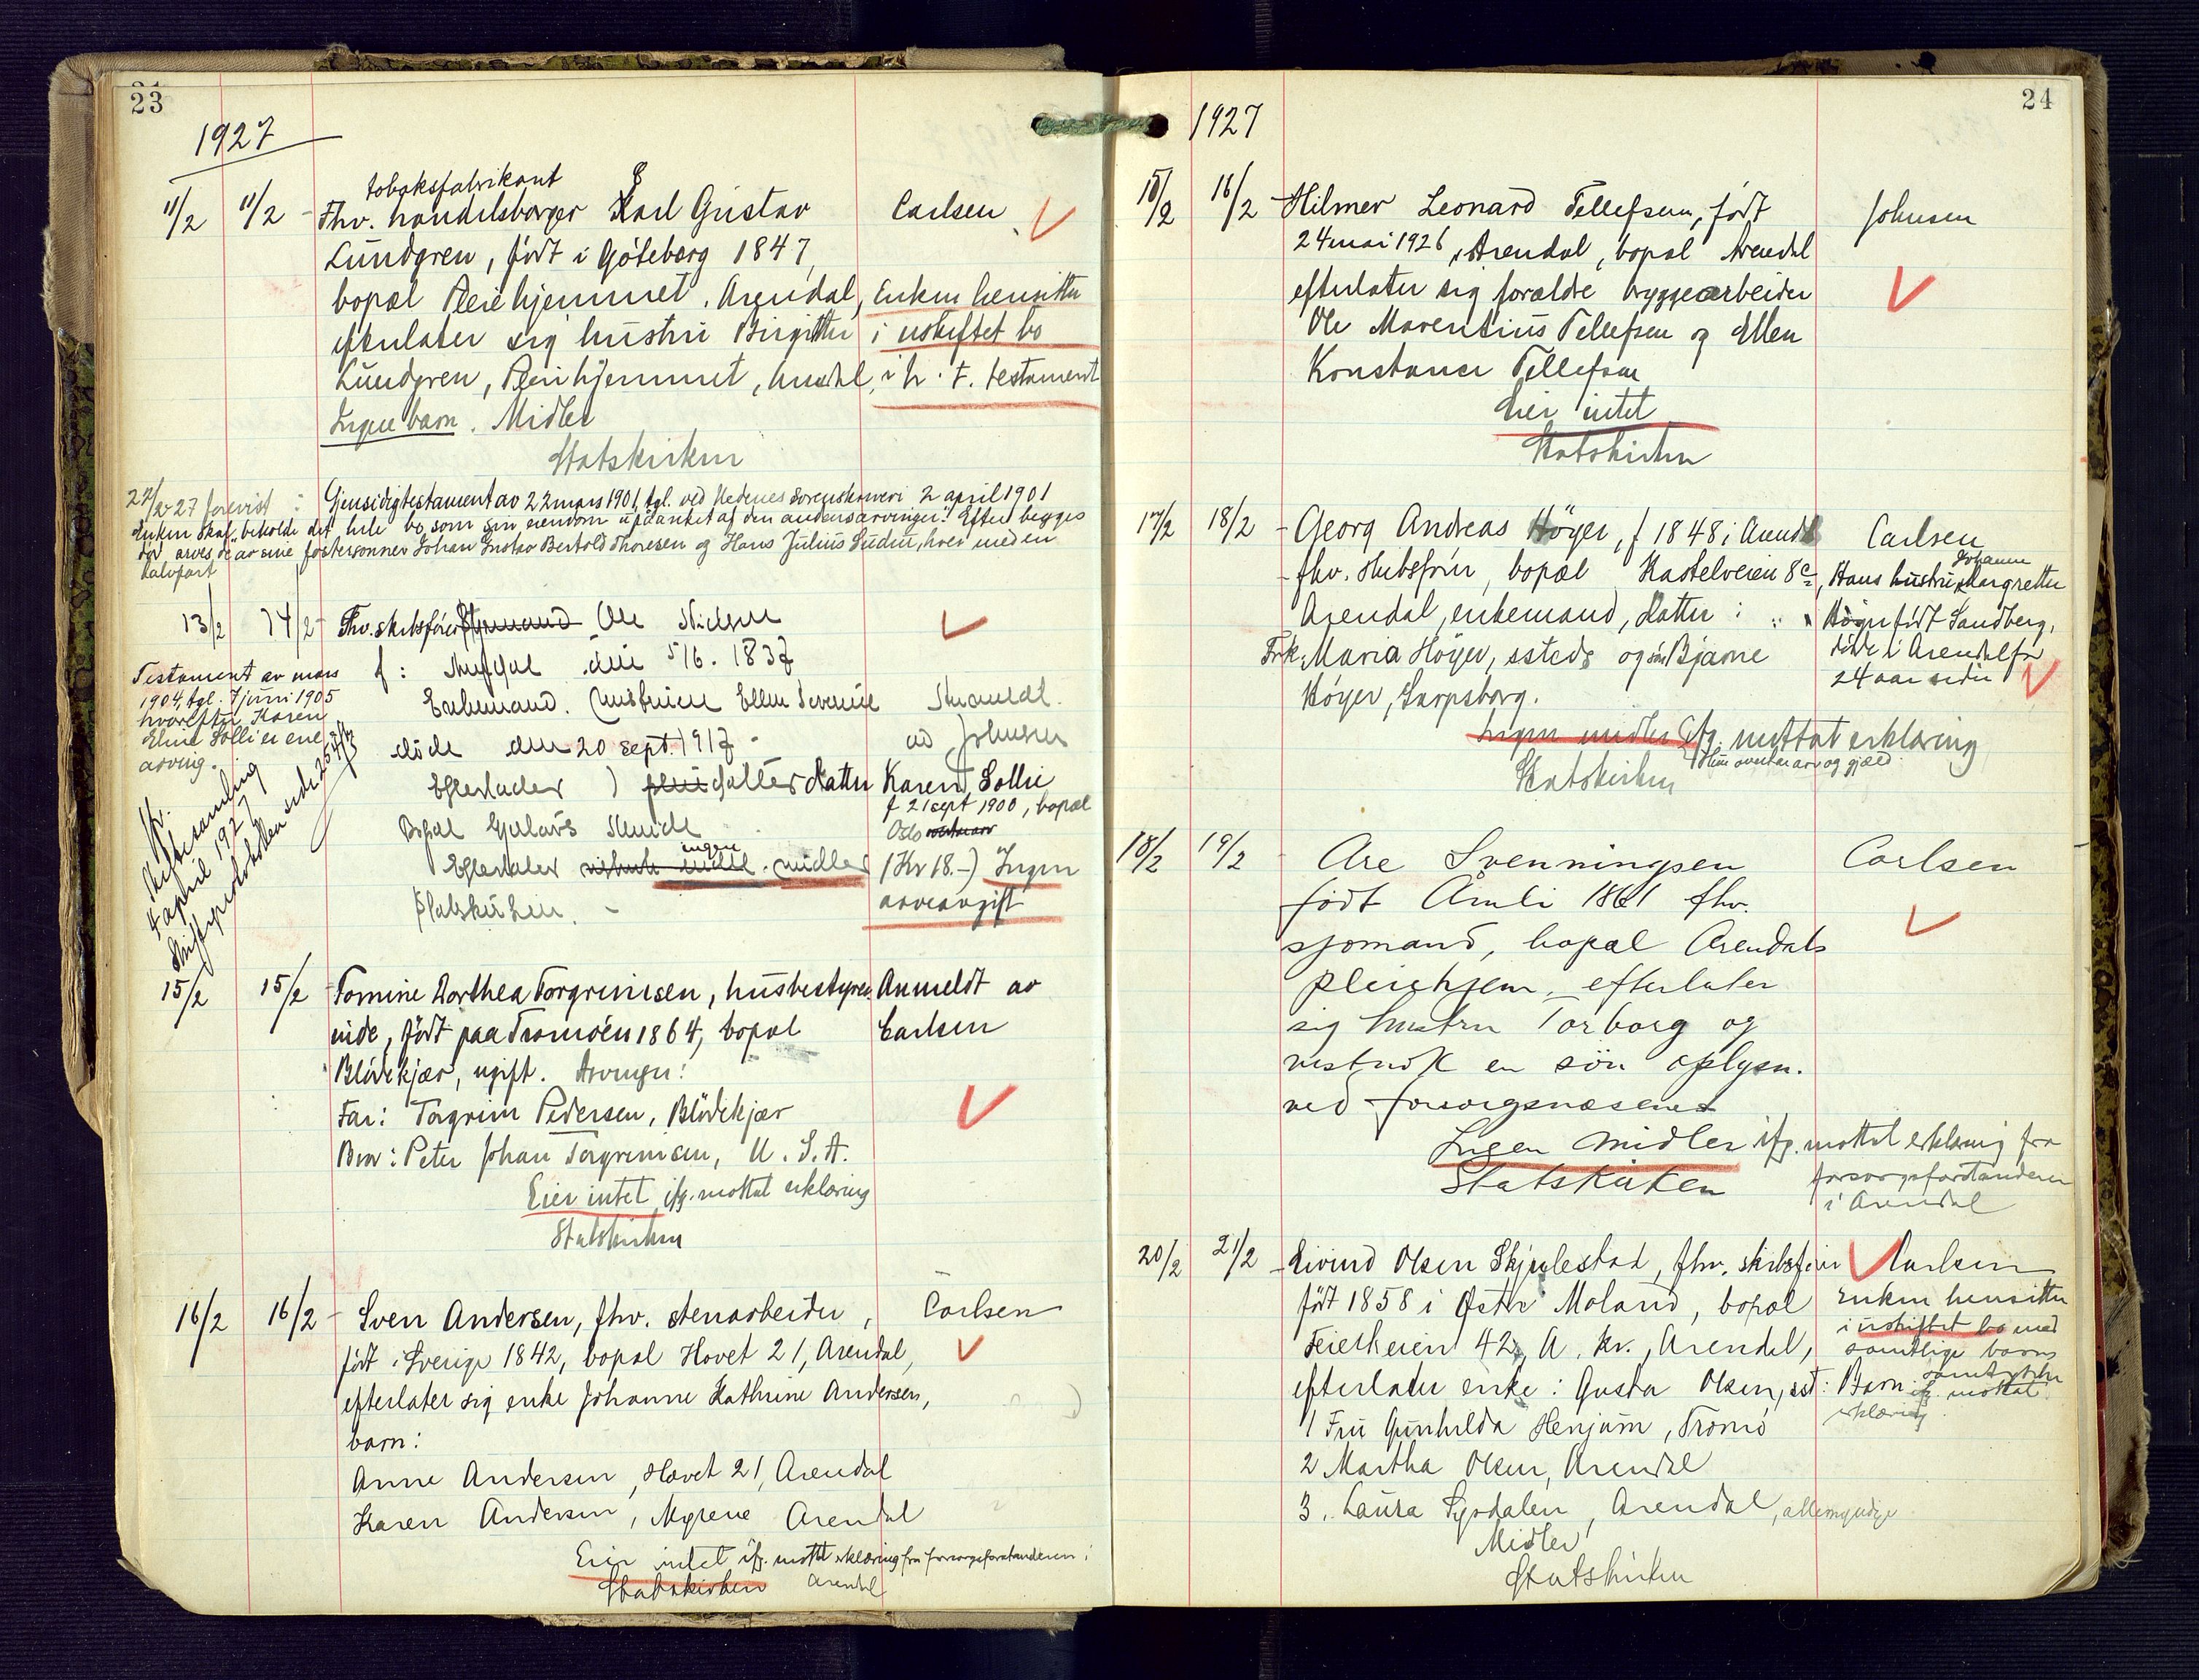 23
1927
tobaksfabrikant
11/2 11/2 - Fhv. handelsborger Karl Gustav Carlsen
Lundgren, født i Göteborg 1847,
bopæl Pleiehjemmet, Arendal, Enken hensitter
efterlater sig hustru Birgitte i uskiftet bo
Lundgren, Pleiehjemmet, Arendal, i h. t. testament
Ingen barn. Midler
Statskirken
22/2 27 forevist: Gjensidig testament av 22 mars 1901, tgl. ved Nedenes Sorenskriveri 2 april 1901
Enken skal "beholde det hele bo som sin eiendom upaanket af den andens arvinger." Efter begges
død arves de av sine fostersønner Johan Gustav Bertold Thoresen og Hans Julius Ludin, hver med en
halvpart
13/2 14/2 - Fhv. skibsfører Styrmand Ole Nielsen
f: den 5/6. 1837
Testament av mars
1904, tgl. 7 juni 1905
hvorefter Karen
Eline Solli er ene
arving.
Enkemand. (hustruen Ellen Severine Anmeldt
døde den 20 sept. 1917 - av Johnsen
Efterlader 1 pleiedatter Datter Karen Sollie
f 21 sept 1900, bopæl
Oslo
Bopæl
Efterlater ingen midler (Kr 18.-) Ingen
Statskirken. - arveavgift
Skiftesamling
4 april 1927
Skifteprotokollen side
15/2 15/2 - Tomine Dorthea Torgrimsen, husbestyrer- Anmeldt av
inde, født paa Tromøen 1864, bopæl Carlsen
Blødekjær, ugift. Arvinger:
Far: Torgrim Pedersen, Blødekjær
Bror: Peter Johan Torgrimsen, U. S. A.
Eier intet ifg. mottat erklæring
Statskirken
16/2 16/2 - Sven Andersen, fhv. stenarbeider, Carlsen
født i Sverige 1842, bopæl Hovet 21, Arendal,
efterlater sig enke Johanne Kathrine Andersen,
barn:
Anne Andersen, Hovet 21, Arendal
Karen Andersen, Myrene Arendal
Eier intet ifg. mottat erklæring fra forsorgsforstanderen i
Statskirken Arendal
24
1927
15/2 16/2 - Hilmer Leonard Tellefsen, født Johnsen
24 mai 1926, Arendal, bopæl Arendal
efterlater sig forældre bryggearbeider
Ole Marentius Tellefsen og Ellen
Konstance Tellefsen
Eier intet
Statskirken
17/2 18/2 - Georg Andreas Høyer, f 1848 i Arendal Carlsen
fhv. skibsfører, bopæl Kastelveien 8c, Hans hustru Johanne Margrethe
Arendal, enkemand, Datter: Høyer født Sandberg,
Frk. Maria Høyer, ssteds og søn Bjarne døde i Arendal for
Høyer, Sarpsborg. 24 aar siden
Ingen midler ifg. mottat erklæring
Hun overtar arv og gjæld.
Statskirken
18/2 19/2 - Are Svenningsen Carlsen
født Åmli 1861 fhv.
sjømand, bopæl Arendals
pleiehjem, efterlater
sig hustru Torborg og
vistnok en søn oplysn.
ved forsorgsvæsenet
Ingen midler ifg. mottat erklæring fra
Statskirken forsorgsforstanderen
i Arendal
20/2 21/2 - Eivind Olsen Skjulestad, fhv. skibsfører Carlsen
født 1858 i Østre Moland, bopæl Enken hensitter
Feierheien 42, A. kv., Arendal, i uskiftet bo med
samtlige barns
samtykke
efterlader enke: Gusta Olsen, sst: Barn: ifg. mottat
erklæring
1 Fru Gunhilda Henjum, Tromø
2 Martha Olsen, Arendal
3. Laura Lysdalen, Arendal, alle myndige
Midler
Statskirken